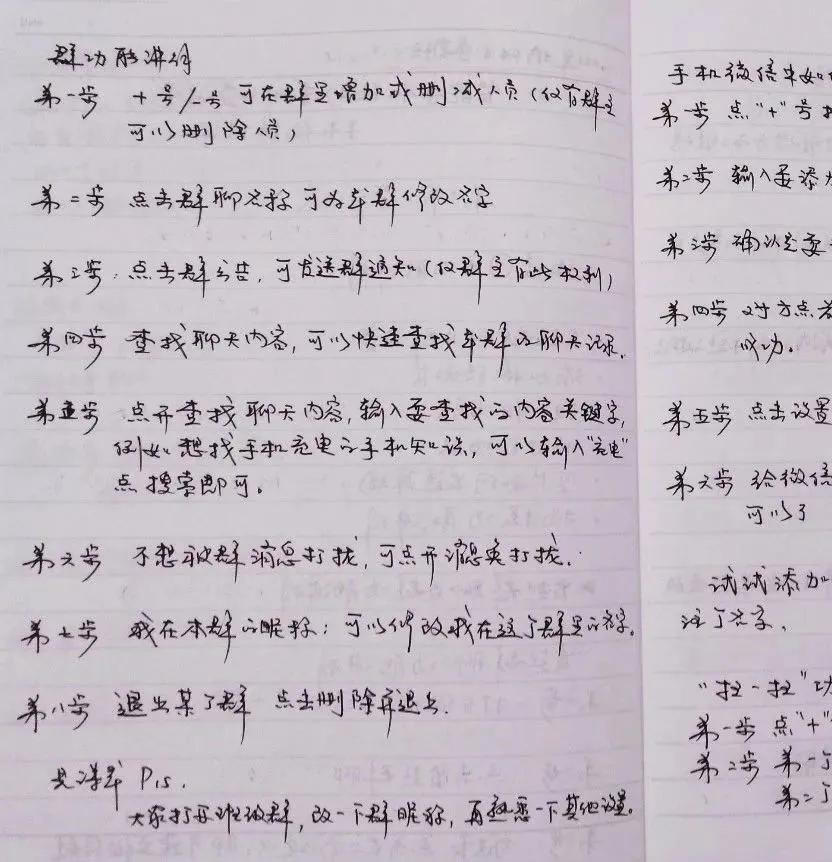 群功能讲解
第一步 十号/一号可在群里增加或删减人员(仅有群主
可以删除人员)
第二步 点击群聊名称可为本群修改名字
第三步:点击群公告,可发送群通知(仅群主有此权利)
第四步 查找聊天内容,可以快速查找本群的聊天记录.
第五步 点开查找聊天内容,输入要查找的内容关键字,
例如想找手机充电的手机知识,可以输入"充电"
点搜索即可。
第六步 不想被群消息打扰,可点开消息免打扰.
第七步 我在本群的昵称:可以修改我在这个群里的名字.
第八步 退出某个群 点击删除并退出.
P15.
大家打开班级群,改一下群昵称,再熟悉一下其他设置。
手机微信中如何
第一步 点"+"号
第二步 输入要添
第三步 确认完要
第四步 对方点
成功。
第五步 点击设置
第六步 给微信
可以了
试试添加
注了名字.
"扫一扫"功
第一步 点"+"
第二步 第一个
第二个